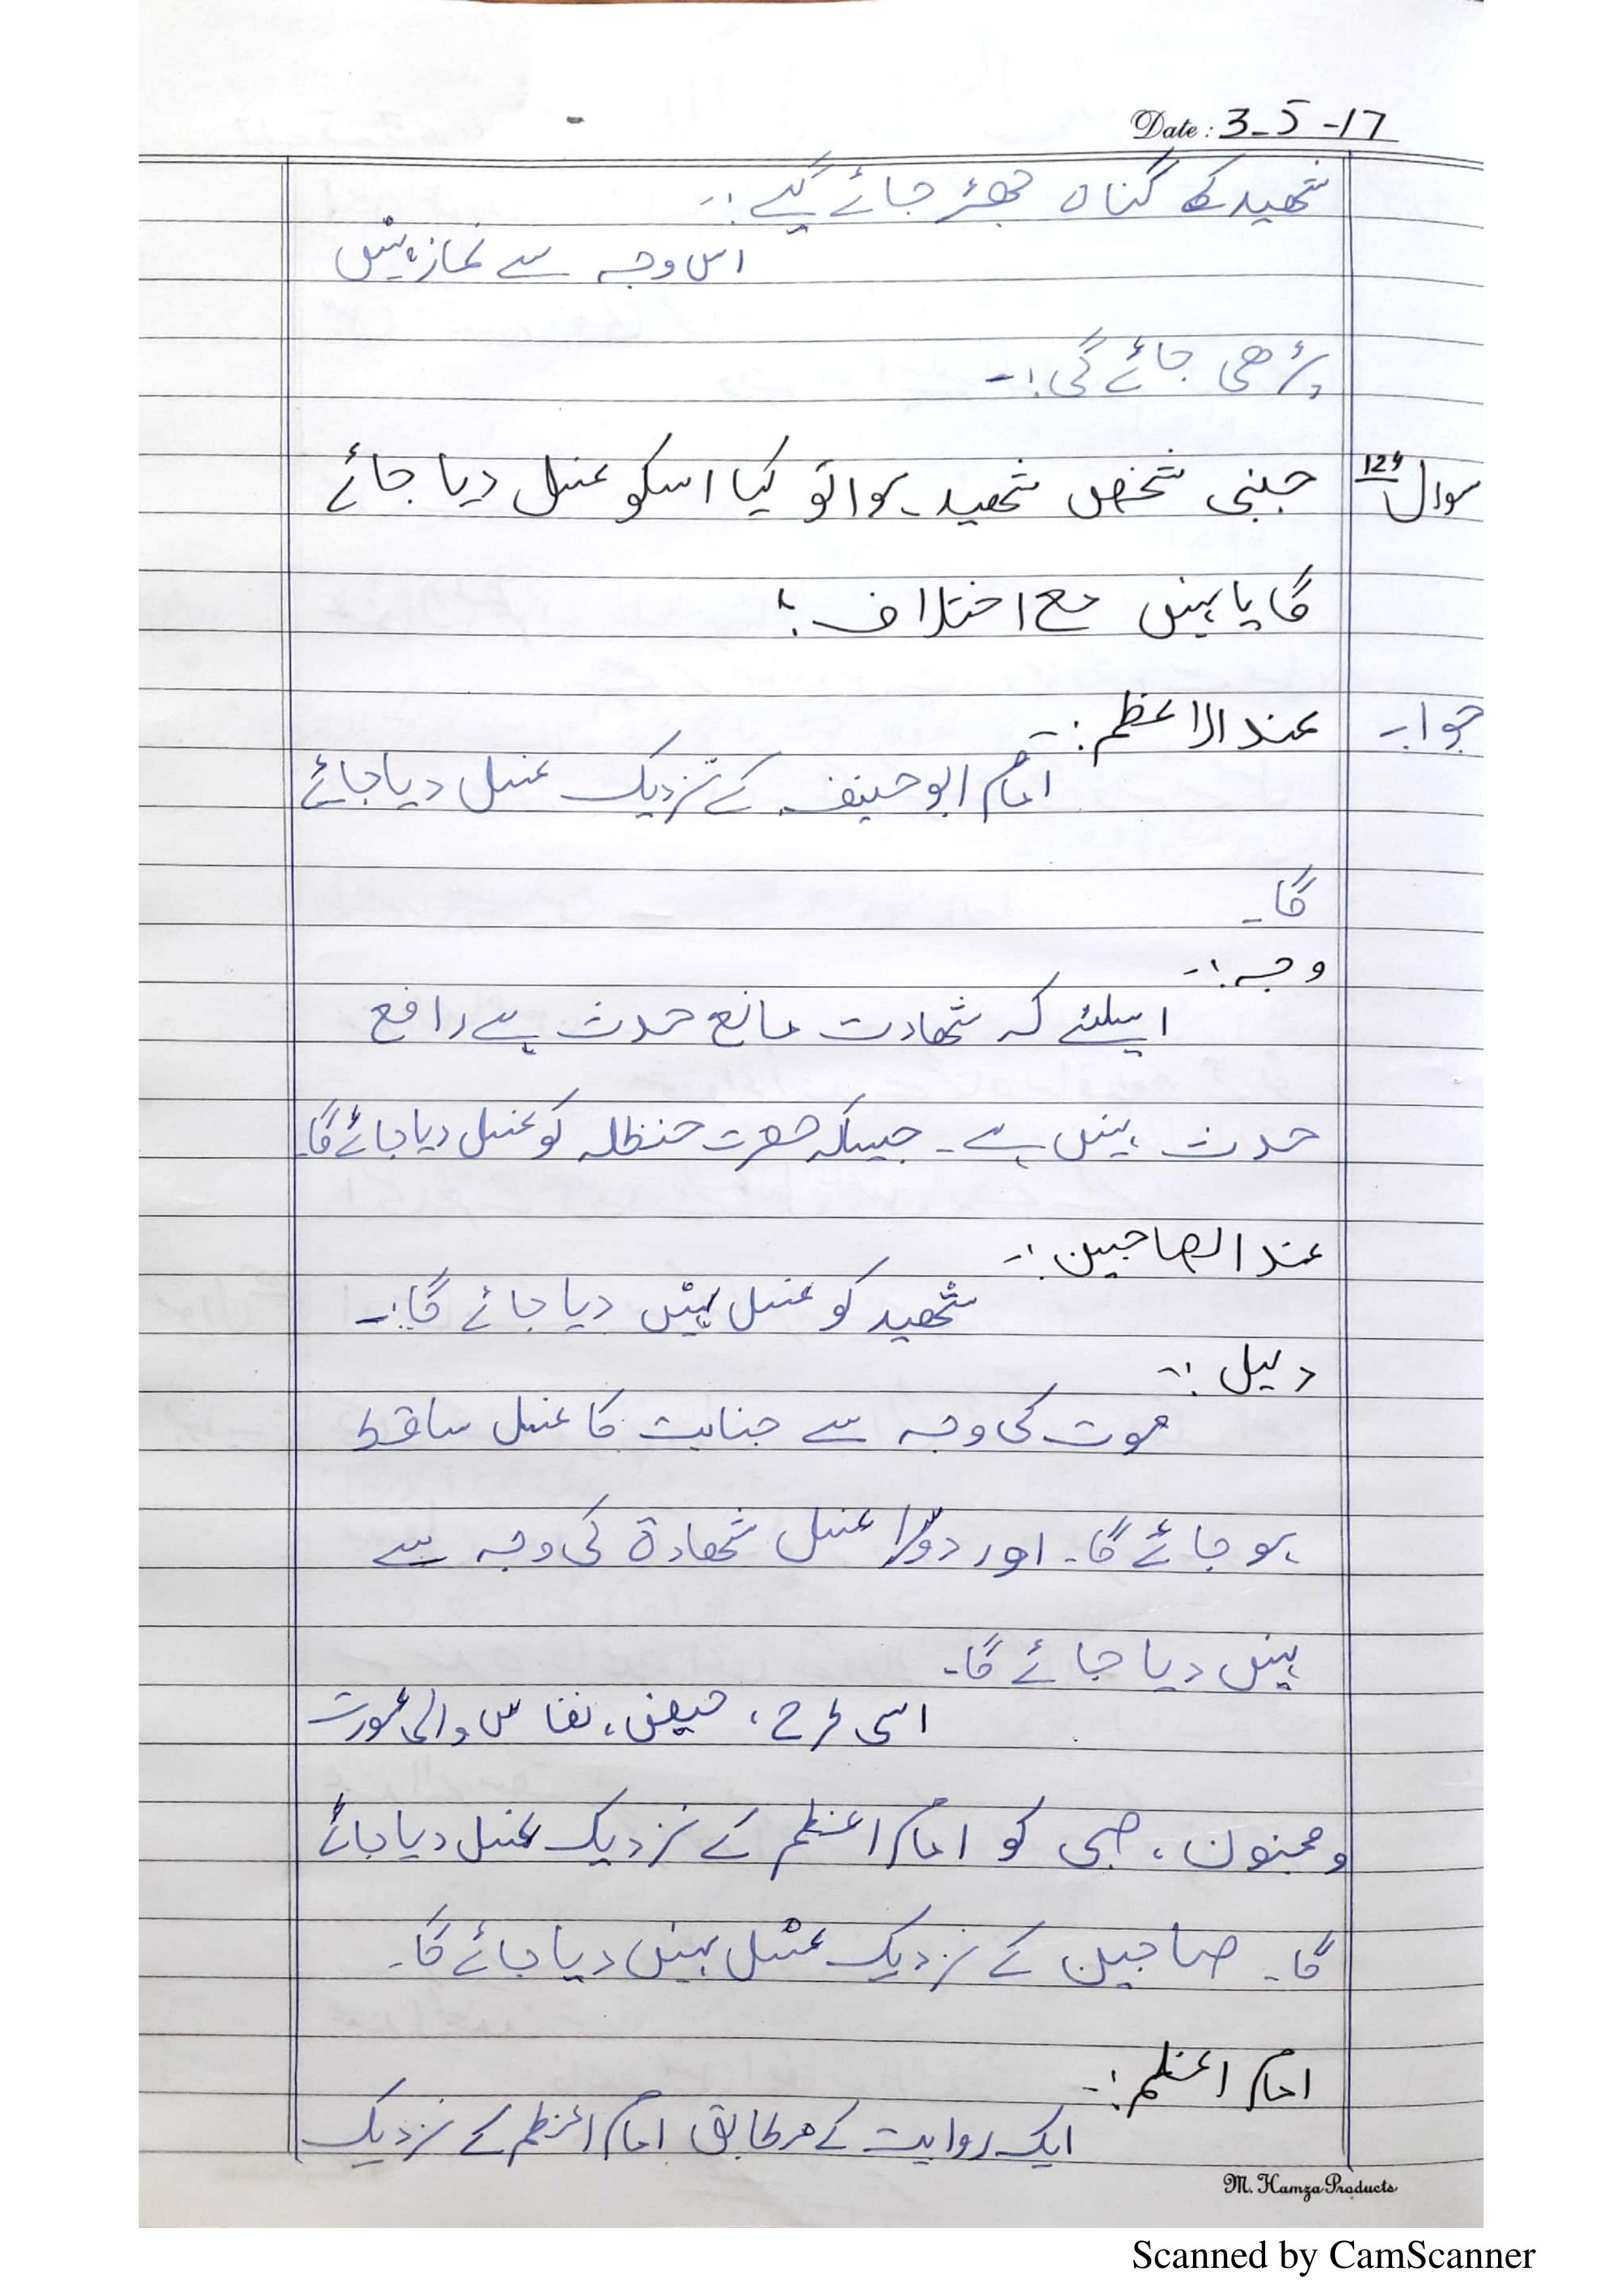 Date: 3-5-17
شھید کے گناہ جھڑ جائے گیے :-
اس وجہ سے نماز نہیں
پڑھی جائے گی :-
سوال 124 جنبی شخص شھید ہوا تو کیا اسکو غسل دیا جائے
گا یا نہیں مع اختلاف ؛
جواب عند الاعظم :-
امام ابو حنیفہ کے نزدیک غسل دیا جائے
گا۔
وجہ :-
اسلئے کہ شھادت مانع حدث ہے رافع
حدث نہیں ہے۔ جیسکہ حضرت حنظلہ کو غسل دیا جائے گا۔
عند الصاحبین :-
شھید کو غسل نہیں دیا جائے گا :-
دلیل :-
موت کی وجہ سے جنابت کا غسل ساقط
ہو جائے گا۔ اور دوسرا غسل شھادۃ کی وجہ سے
نہیں دیا جائے گا۔
اسی طرح ، حیض ، نفاس والی عورت
و مجنون ، صبی کو امام اعظم کے نزدیک غسل دیا جائے
گا۔ صاحبین کے نزدیک غسل نہیں دیا جائے گا۔
امام اعظم :-
ایک روایت کے مطابق امام اعظم کے نزدیک
M. Hamza Products
Scanned by CamScanner